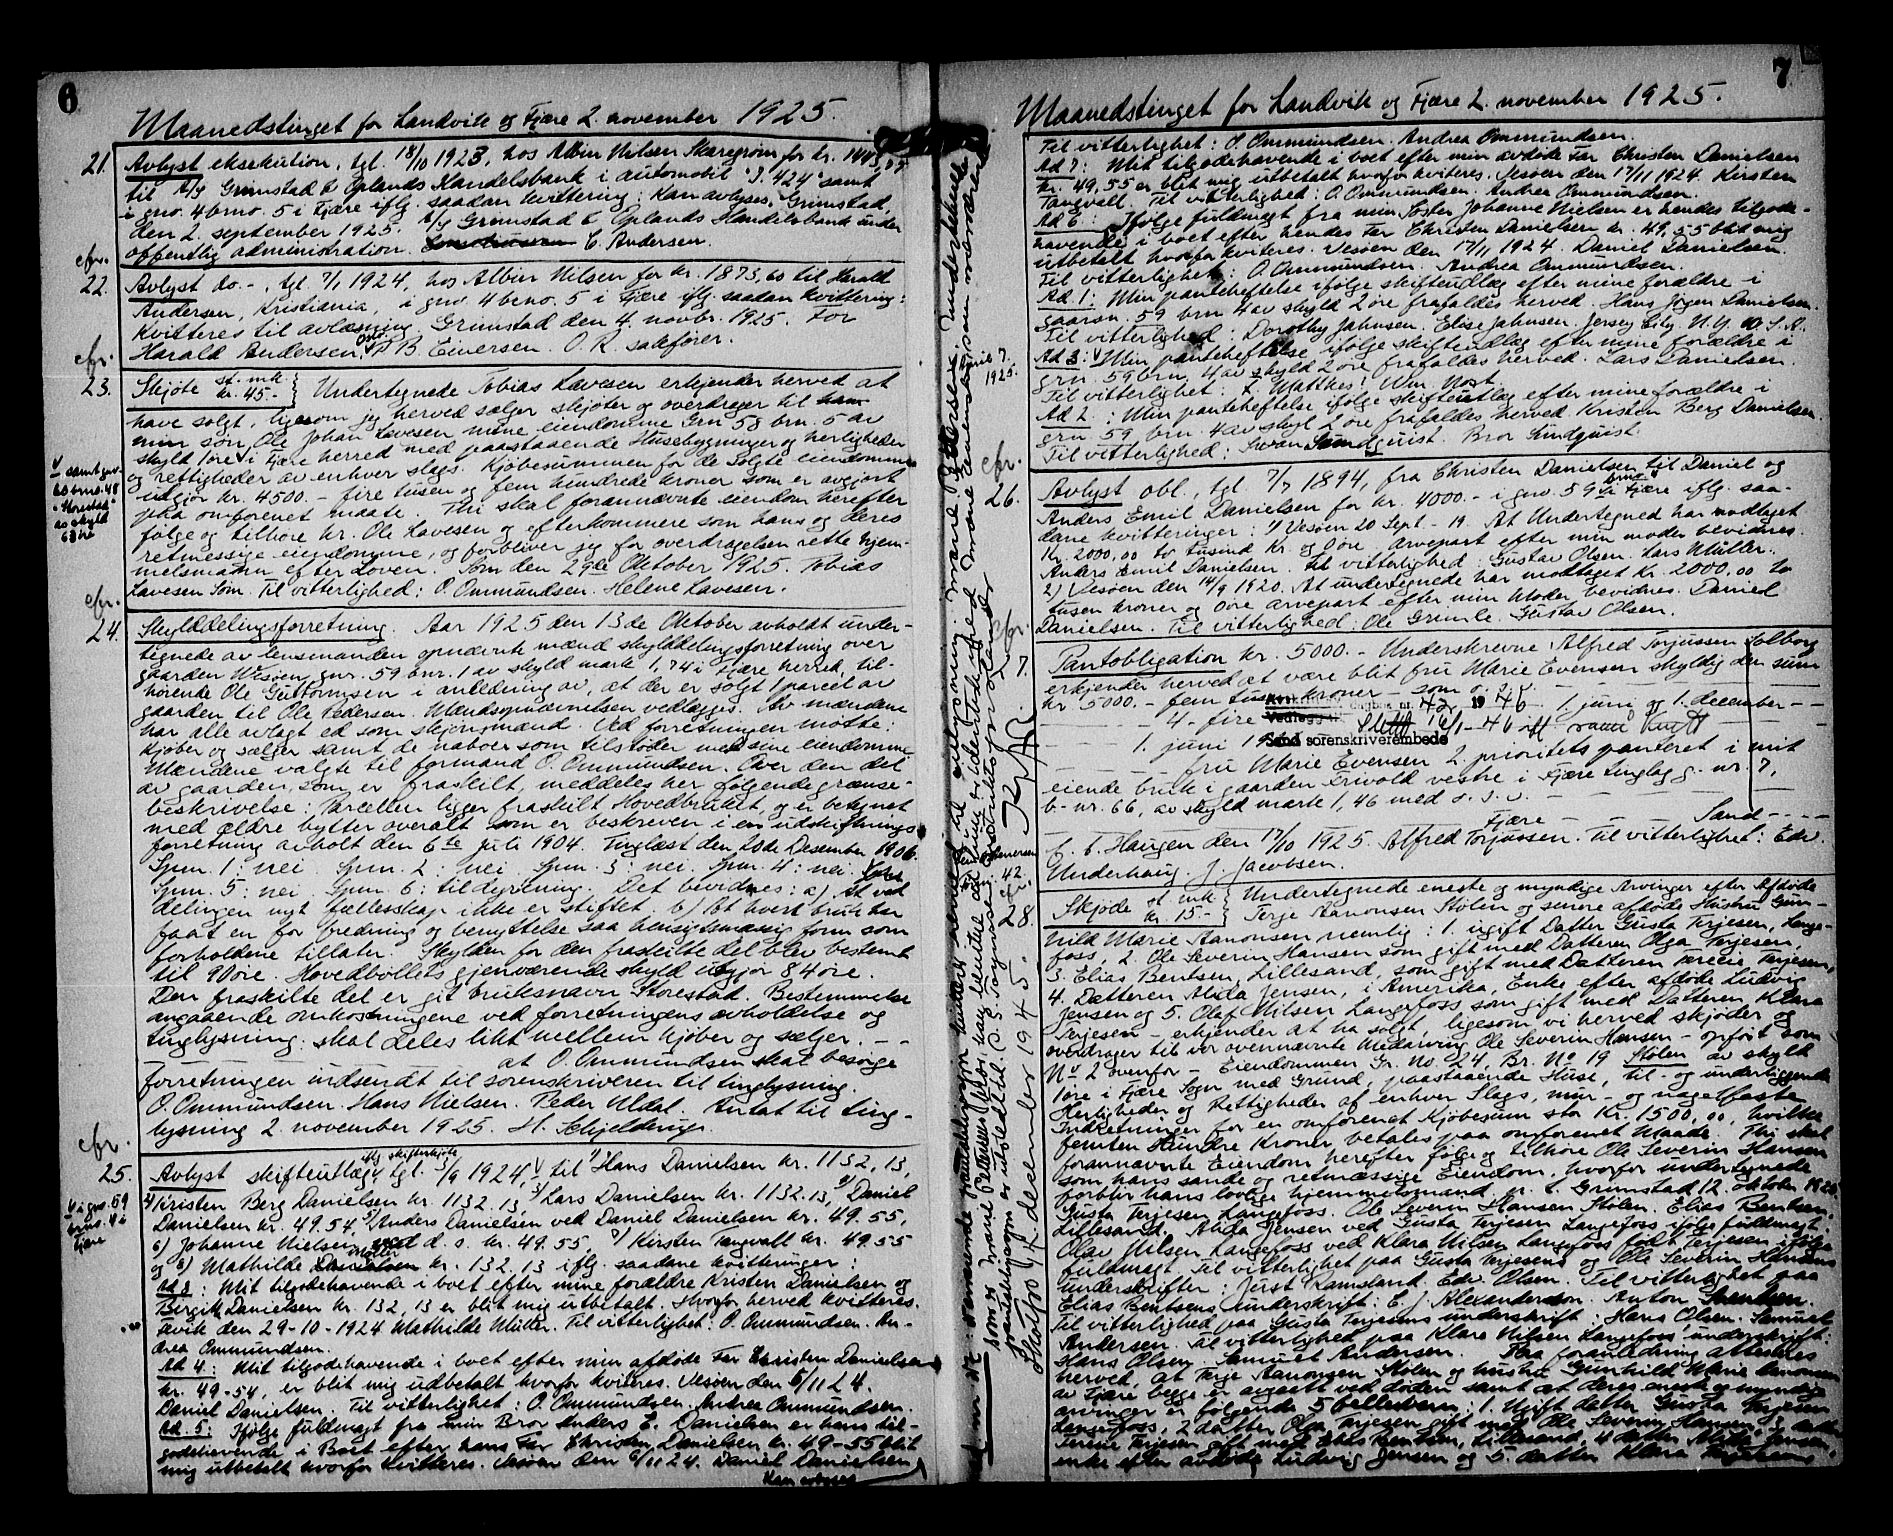 6
Maanedstinget for Landvik og Fjære 2. november 1925.
21. Avlyst eksekution, tgl. 18/10 1923, hos Albin Nilsen Skaregrøm for kr.
til A/S Grimstad & Oplands Handelsbank i automobil "I. 424" samt
i gno. 4 brno. 5 i Fjære iflg. saadan kvittering: Kan avlyses. Grimstad
den 2. september 1925. A/S Grimstad & Oplands Handelsbank under
offentlig administration. C. Andersen.
cfr.
22. Avlyst do.-, tgl. 7/1 1924, hos Albin Nilsen for kr. 1873,60 til Harald
Andersen, Kristiania, i gno. 4 brno. 5 i Fjære iflg. saadan kvittering:
Kvitteres til avlæsning. Grimstad den 4. novbr. 1925. For
Harald Andersen, Oslo, P. B. Einersen. O. R. sakfører.
cfr.
23. Skjøte st. mk. kr. 45.- Undertegnede Tobias Lavesen erkjender herved at
have solgt, ligesom jeg herved sælger skjøter og overdrager til
min søn Ole Johan Lavesen mine eiendomme Grn 58 brn. 5 av
skyld 1 øre V i Fjære herred med paastaaende Husebygninger og herligheder
og rettigheder av enhver slags. Kjøbesummen for de solgte eiendomme
utgjør kr. 4500.- fire tusen og fem hundrede kroner som er avgjort
paa omforenet maate. Thi skal forannævnte eiendom herefter
følge og tilhøre hr. Ole Lavesen og efterkommere som hans og deres
retmessige eiendomme, og forbliver jeg for overdragelsen rette hjem-
melsmann efter Loven. Søm den 29de Oktober 1925. Tobias
Lavesen Søm. Til vitterlighed: O. Ommundsen. Helene Lavesen.
V samt gnr.
60 brno. 48
"Storestad"
av skyld
cfr.
24. Skylddelingsforretning. Aar 1925 den 13de Oktober avholdt under-
tegnede av lensmanden opnævnte mænd skylddelingsforretning over
gaarden Wesøen gnr. 59 bnr. 1 av skyld mark 1,74 i Fjære herred, til-
hørende Ole Guttormsen i anledning av, at der er solgt 1 parcel av
gaarden til Ole Pedersen. Mandsopnævnelsen vedlægges. Av mændene
har alle avlagt ed som skjønsmænd. Ved forretningen møtte:
Kjøber og sælger samt de naboer som tilstøder med sine eiendomme.
Mændene valgte til formand O. Ommundsen. Over den del
av gaarden, som er fraskilt, meddeles her følgende grænse-
beskrivelse: Parcellen ligger fraskilt Hovedbruket, og er betegnet
med ældre bytter overalt som er beskreven i en udskiftnings
forretning avholt den 6te juli 1904. Tinglæst den 20de Desember 1906.
Spm. 1: nei. Spm. 2: nei. Spm. 3: nei. Spm. 4: nei.
Spm. 5: nei. Spm. 6: til dyrkning. Det bevidnes: a) At ved
delingen nyt fællesskap ikke er stiftet. b) At hvert bruk har
faat en for fredning og benyttelse saa hensigtsmæssig form som
forholdene tillater. Skylden for den fraskilte del blev bestemt
til 90 øre. Hovedbøllets gjenværende skyld utgjør 84 øre.
Den fraskilte del er git bruksnavn Storestad. Bestemmelse
angaaende omkostningene ved forretningens avholdelse og
tinglysning: skal deles likt mellem kjøber og sælger. - -
at O. Ommundsen skal besørge
forretningen indsendt til sorenskriveren til tinglysning.
O. Ommundsen. Hans Nielsen. Peder Uldal. Antat til ting-
lysning 2. november 1925. H. Schjeldrup.
cfr.
25. Avlyst skifteutlæg iflg skifteskjøte, tgl. 3/9 1924, V til 1) Hans Danielsen kr. 1132,13,
2) Kristen Berg Danielsen kr. 1132.13, 3) Lars Danielsen kr. 1132.13, 4) Daniel
Danielsen kr. 49.54, 5) Anders Danielsen ved Daniel Danielsen kr. 49.55,
6) Johanne Nielsen ved d. s. kr. 49.55 7) Kirsten Tangvalt kr. 49.55
og 8) Mathilde Møller kr. 132,13 iflg. saadanne kvitteringer:
V i gno. 59
brno. 4 i
Fjære
Ad 8: Mit tilgodehavende i boet efter mine forældre Kristen Danielsen og
Birgit Danielsen kr. 132,13 er blit mig utbetalt. Hvorfor herved kvitteres.
Vik den 29-10-1924 Mathilde Müller. Til vitterlighet: O. Ommundsen. An-
drea Ommundsen.
Ad 4: Mit tilgodehavende i boet efter min afdøde Far Christen Danielsen
kr. 49-54, er blit mig udbetalt hvorfor kvitteres. Vesøen den 6/11 24.
Daniel Danielsen. Til vitterlighet: O. Ommundsen. Andrea Ommundsen.
Ad 5: Ifølge fuldmagt fra min Bror Anders E. Danielsen er hans til-
godehavende i Boet efter hans Far Christen Danielsen kr. 49-55 blit
mig utbetalt hvorfor kvitteres. Vesøen den 6/11 24. Daniel Danielsen
7
Maanedstinget for Landvik og Fjære 2. november 1925.
Til vitterlighet: O. Ommundsen. Andrea Ommundsen.
Ad 7: Mit tilgodehavende i boet efter min avdøde Far Christen Danielsen
kr. 49,55 er blit mig utbetalt hvorfor kviteres. Vesøen den 17/11 1924. Kirsten
Tangvall. Til vitterlighet: O. Ommundsen. Andrea Ommundsen.
Ad 6: Ifølge fuldmagt fra min Søster Johanne Nielsen er hendes tilgode-
havende i boet efter hendes Far Christen Danielsen kr. 49,55 blit mig
utbetalt hvorfor kviteres. Vesøen den 17/11 1924. Daniel Danielsen.
Til vitterlighet: O. Ommundsen. Andrea Ommundsen.
Ad 1: Min panteheftelse ifølge skifteutlæg efter mine forældre i
gaarsn. 59 brn 4 av skyld 2 øre frafaldes herved. Hans Jørgen Danielsen.
Til vitterlighed: Dorothy Johnsen. Elise Johnsen, Jersey City. N.Y. U.S.A.
Ad 3: Min panteheftelse ifølge skifteutlæg efter mine forældre i
grn. 59 brn 4 av skyld 2 øre frafaldes herved. Lars Danielsen
Til vitterlighet: L. Matthes. Wm. Nost.
April 7. 1925.
Ad 2: Min panteheftelse ifølge skifteutlæg efter mine forældre i
grn. 59 brn. 4 av skyld 2 øre frafaldes herved. Kristen Berg Danielsen.
Til vitterlighed: Swan Sundquist. Bror Sundquist.
cfr.
26. Avlyst obl., tgl. 7/7 1894, fra Christen Danielsen til Daniel og
Anders Emil Danielsen for kr. 4000.- i gno. 59 brno. 4 i Fjære iflg. saa-
dane kvitteringer: 1) Vesøen 20 Sept.- 19. At Undertegned har modtaget
Kr. 2000,00 to tusind Kr. og 0 øre. Arvepart efter min moder bevidnes.
Anders Emil Danielsen. Til vitterlighed: Gustav Olsen. Lars Müller.
2) Vesøen den 14/9 1920. At undertegnede har modtaget Kr. 2000,00 to
tusen kroner og 0 øre arvepart efter min Moder bevidnes. Daniel
Danielsen. Til vitterlighed: Ole Grimle. Gustav Olsen.
cfr.
27. Pantobligation kr. 5000.- Underskrevne Alfred Torjussen Solborg
erkjender herved at være blit fru Marie Evensen skyldig den sum
kr 5000.- fem tusen kroner - som
dagbok nr. 42 1946 1. juni og 1. december - -
4- fire
Vedlegg
1. juni
Sand sorenskriverembede
fru Marie Evensen 2. prioritets panteret i mit
eiende bruk i gaarden Frivold vestre i Fjære tinglag g. nr. 7,
b- nr. 66, av skyld mark 1,46 med o. s. v.
Fjære Sand - - -
Haugen den 17/10 1925. Alfred Torjussen. Til vitterlighet: Edv.
Underhaug. J. Jacobsen.
cfr.
28. Skjøde st. mk. kr. 15.- Undertegnede eneste og myndige Arvinger efter Afdøde
Terje Aanonsen Stølen og senere afdøde Hustru Gun-
hild Marie Aanonsen nemlig: 1. ugift Datter Gusta Terjesen, Lange-
foss, 2. Ole Severin Hansen som gift med Datteren Olga Terjesen,
3. Elias Bentsen, Lillesand, som gift med Datteren Terecie Terjesen,
4. Datteren Alida Jensen, i Amerika, Enke efter afdøde Ludvig
Jensen og 5. Olaf Nilsen Langefoss som gift med Datteren Klara
Terjesen - erkjender at ha solgt, ligesom vi herved skjøder og
overdrager til vor ovennævnte Medarving Ole Severin Hansen - opført som
No 2 ovenfor - Eiendommen Gr. No 24, Br. No 19 Stølen av skyld
1 øre i Fjære Sogn med Grund, paastaaende Huse, til- og underliggende
Herligheder og Rettigheder af enhver Slags, mur- og nagelfaste
Indretninger for en omforenet Kjøbesum stor Kr. 1500,00, hvilke
femten Hundre Kroner betales paa omforenet Maade. Thi skal
forannævnte Eiendom herefter følge og tilhøre Ole Severin Hansen
som hans sande og retmæssige Eiendom, hvorfor undertegnede
forblir hans lovlige hjemmelsmænd. Grimstad 12. oktober
Gusta Terjesen Langefoss. Ole Severin Hansen Stølen. Elias Bentsen,
Lillesand. Alida Jensen ved Gusta Terjesen Langefoss ifølge fuldmagt.
Olav Nilsen Langefoss ved Klara Nilsen Langefoss født Terjesen ifølge
fuldmagt. Til vitterlighet paa Gusta Terjesens og Ole Severin Hansens
underskrifter: Just Ramsland. Edv. Olsen. Til vitterlighet paa
Elias Bentsens underskrift: E. J. Alexandersen. Anton
Til vitterlighed paa Gusta Terjesens underskrift: Hans Olsen. Samuel
Andersen. Til vitterlighed paa Klara Nilsen Langefoss' underskrift:
Hans Olsen. Samuel Andersen. Paa foranledning attesteres
herved, at Terje Aanonsen Stølen og hustru Gunhild Marie Aanonsen
av Fjære begge er avgaatt ved døden samt at deres eneste og myndige
arvinger er følgende 5 : 1. Ugift datter Gusta Terjesen
Langefoss, 2 datter Olga Terjesen gift med Ole Severin Hansen, 3 datter
Terecie Terjesen gift med Elias Bentsen, Lillesand, 4 datter Alida Jensen,
enke efter avdøde Ludvig Jensen og 5. datter Klara